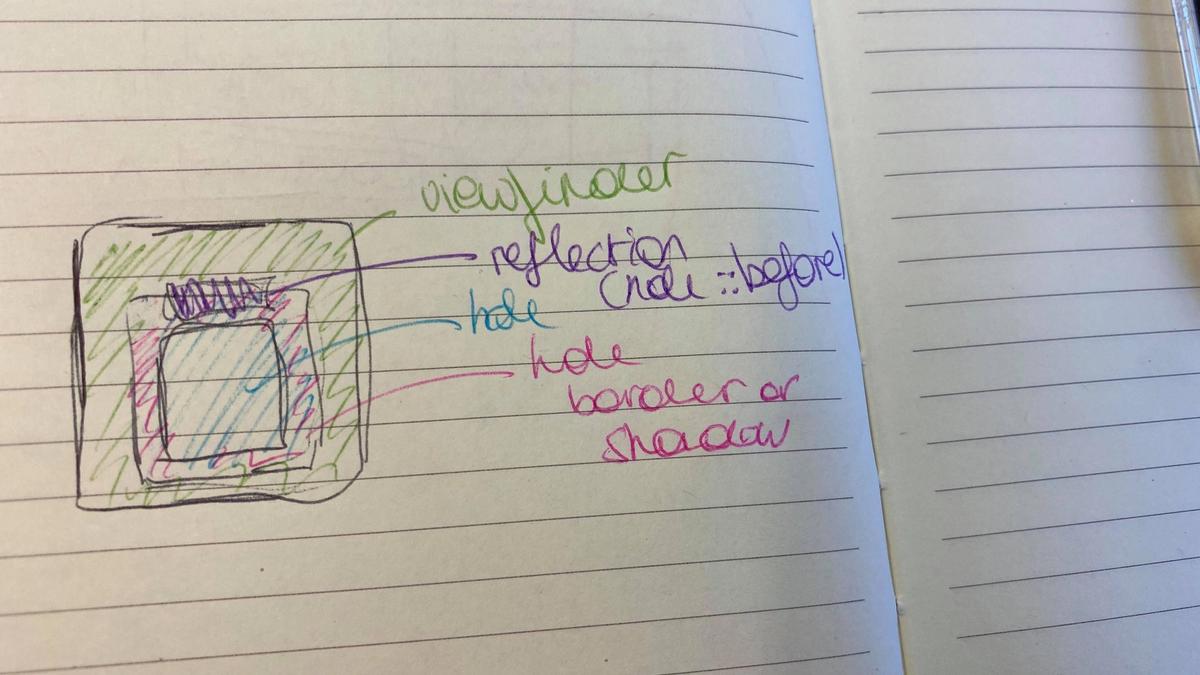 viewfinder
reflection
(hole ::before)
hole
hole
border or
shadow